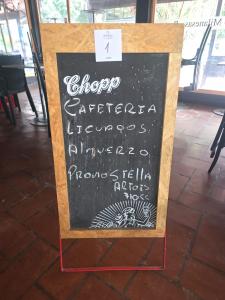 1
Chopp
CAFETERIA
LICUADOS
ALMUERZO
PROMO STELLA
ARTOIS
710CC